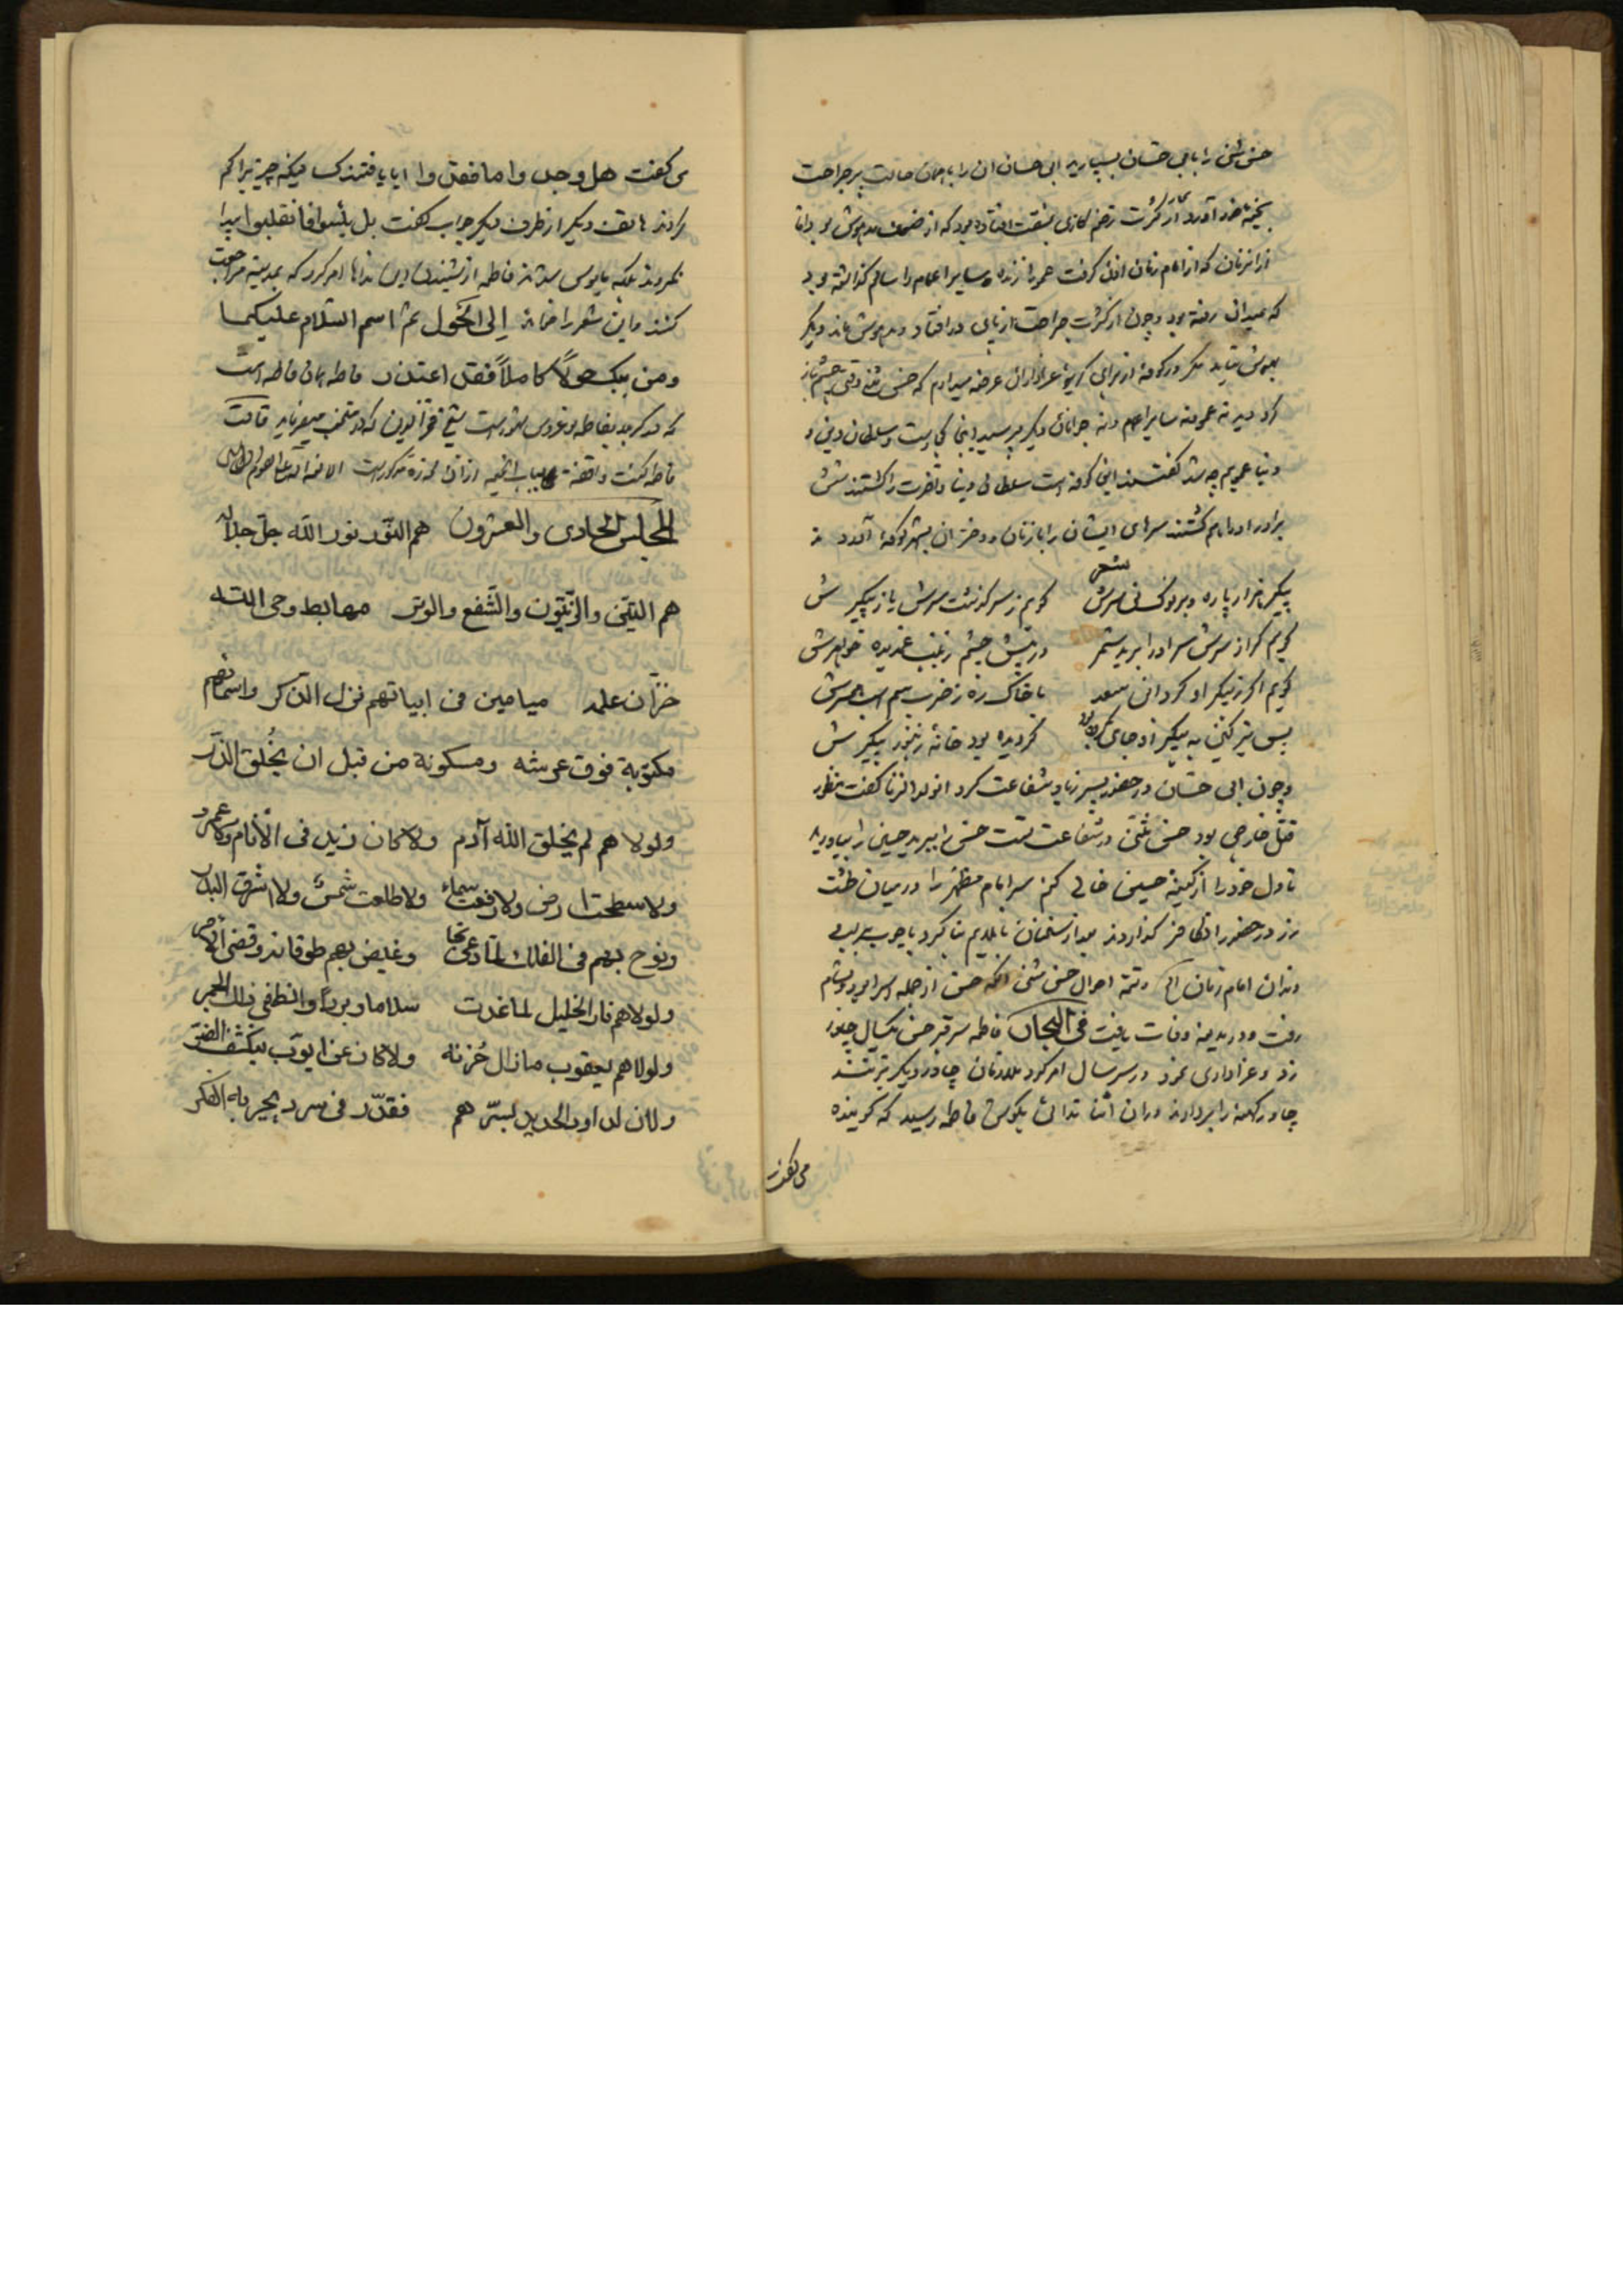 حسن مثنی را بابی حسان بسپارید ابی حسان ان را با همان حالت پر جراحت
بخیمهٔ خود آورد از کثرت زخم کاری بمشقت افتاده بود که از ضعف مدهوش بود و اما
از انزمان که از امام زمان اذن گرفت عمو را زنده و سایر اعمام را سالم گذاشته بود
که بمیدان رفته بود و چون از کثرت جراحت از پای در افتاد و مدهوش ماند دیگر
بهوش نیامد مگر در کوفه از برای عزاداران عرضه میدارم که حسن مثنی وقتی چشم باز
کرد دید نه عمو نه سایر اعمام و نه جوانان دیگر پرسید اینجا کجاست و سلطان دین و
دنیا عمویم چه شد گفتند این کوفه است سلطان دین و دنیا را کشتند شش
برادر او را هم کشتند سرهای ایشان را با زنان و دختران بشهر کوفه آوردند
شعر
پیکر هزار پاره و بر نوک نی سرش گویم ز سرگذشت سرش یا ز پیکرش
گویم گر از سرش سر او را برید شمر در پیش چشم زینب غمدیده خواهرش
گویم اگر ز پیکر او کرد ابن سعد با خاک ره ز ضرب سم اسب همسرش
بس تیر کین به پیکر او جای کرده بود گردیده بود خانهٔ زنبور پیکرش
و چون ابی حسان در حضور پسر زیاد شفاعت کرد انولد الزنا گفت منظور
قتل خارجی بود حسن مثنی در شفاعت تست حسن را ببرید حسین را بیاورید
تا دل خود را از کینهٔ حسین خالی کنم سر امام مظلوم را در میان طشت
زر در حضور ان کافر گذاردند بعد از سخنان ناملایم بنا کرد با چوب بر لب
و دندان امام زمان الخ و تتمه احوال حسن مثنی انکه حسن از جمله اسرا بود و بشام
رفت و در مدینه وفات یافت فی البحار فاطمه سر قبر حسن یکسال چادر
زد و عزاداری نمود و در سر سال امر کرد بملازمان چادر دیگر بزنند
چادر کهنه را بردارند در ان اثنا ندائی بگوش فاطمه رسید که گوینده
می گفت
می گفت هل وجدوا ما فقدوا ایا یافتند کسانیکه چیزیرا گم
کردند هاتف دیگر از طرف دیگر جواب گفت بل یئسوا فانقلبوا پیدا
نکردند بلکه مایوس شدند فاطمه از شنیدن این نداها امر کرد که بمدینه مراجعت
کنند و این شعر را خواند الی الحول ثم اسم السلام علیکما
ومن یبک حولاً کاملاً فقد اعتذر فاطمه همان فاطمه است
که در کربلا بفاطمه نو عروس مشهور است شیخ فخر الدین که در منتخب میفرماید قالت
فاطمه کنت واقفة بباب الخیمه
المجلس الحادی والعشرون هم النور نور الله جل جلاله
هم التین والزیتون والشفع والوتر مهابط وحی الله
خزان علمه میامین فی ابیاتهم نزل الذکر واسمائهم
مکتوبة فوق عرشه ومسکونة من قبل ان یخلق الذر
ولولا هم لم یخلق الله آدم ولا کان زید فی الأنام ولا عمرو
ولا سطحت ارض ولا رفعت سماء ولا طلعت شمس ولا اشرق البدر
ونوح بهم فی الفلک لما دعی نجا وغیض بهم طوفانه وقضی الامر
ولولاهم نار الخلیل لما غدت سلاما وبرداً وانطفی ذلک الجمر
ولولاهم یعقوب ما زال حُزنه ولا کان عن ایوب ینکشف الضر
ولان لداود الحدید بسرّهم فقدّر فی سرد یحیر به الفکر